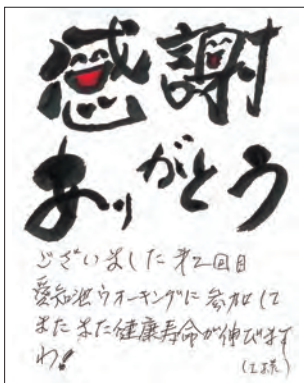 感謝
ありがとう
ございました 第2回目
愛知池ウオーキングに参加して
まだまだ健康寿命が伸びます
わ!
(工様)